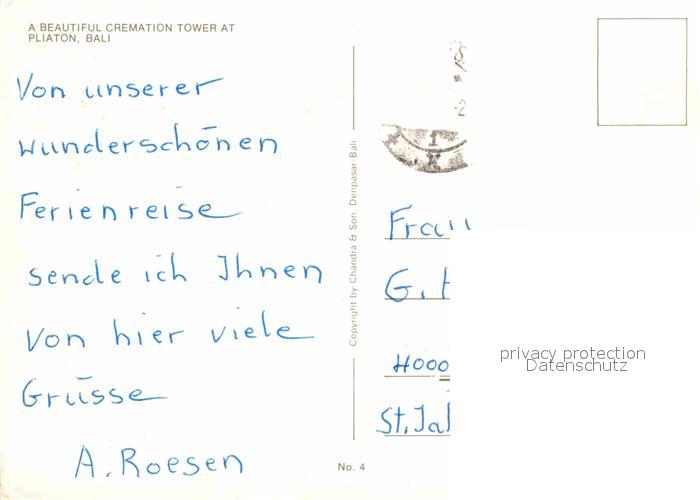 A BEAUTIFUL CREMATION TOWER AT
PLIATON, BALI
Von unserer
wunderschönen
Ferienreise
sende ich Ihnen
von hier viele
Grüsse
A. Roesen
Copyright by Chandra & Son. Denpasar-Bali
No. 4
Frau
G. 
4000
St. Jal
privacy protection
Datenschutz